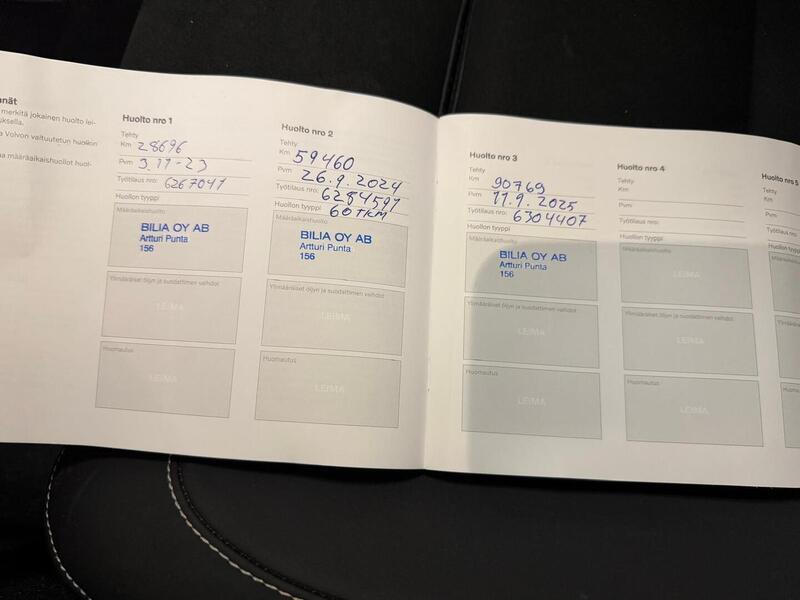 nät
merkitä jokainen huolto lei-
uksella.
a Volvon valtuutetun huollon
aa määräaikaishuollot huol-
Huolto nro 1
Tehty
Km 28696
Pvm 3.11-23
Työtilaus nro: 6267041
Huollon tyyppi
Määräaikaishuolto
BILIA OY AB
Artturi Punta
156
Ylimääräiset öljyn ja suodattimen vaihdot
LEIMA
Huomautus
LEIMA
Huolto nro 2
Tehty
Km 59460
Pvm 26.9.2024
Työtilaus nro: 6284597
Huollon tyyppi 60TKM
Määräaikaishuolto
BILIA OY AB
Artturi Punta
156
Ylimääräiset öljyn ja suodattimen vaihdot
LEIMA
Huomautus
LEIMA
Huolto nro 3
Tehty
Km 90769
Pvm 11.9.2025
Työtilaus nro: 6304407
Huollon tyyppi
Määräaikaishuolto
BILIA OY AB
Artturi Punta
156
Ylimääräiset öljyn ja suodattimen vaihdot
LEIMA
Huomautus
LEIMA
Huolto nro 4
Tehty
Km
Pvm
Työtilaus nro:
Huollon tyyppi
Määräaikaishuolto
LEIMA
Ylimääräiset öljyn ja suodattimen vaihdot
LEIMA
Huomautus
LEIMA
Huolto nro 5
Tehty
Km
Pvm
Työtilaus nro:
Huollon tyyppi
Määräaikaishuolto
Ylimääräiset